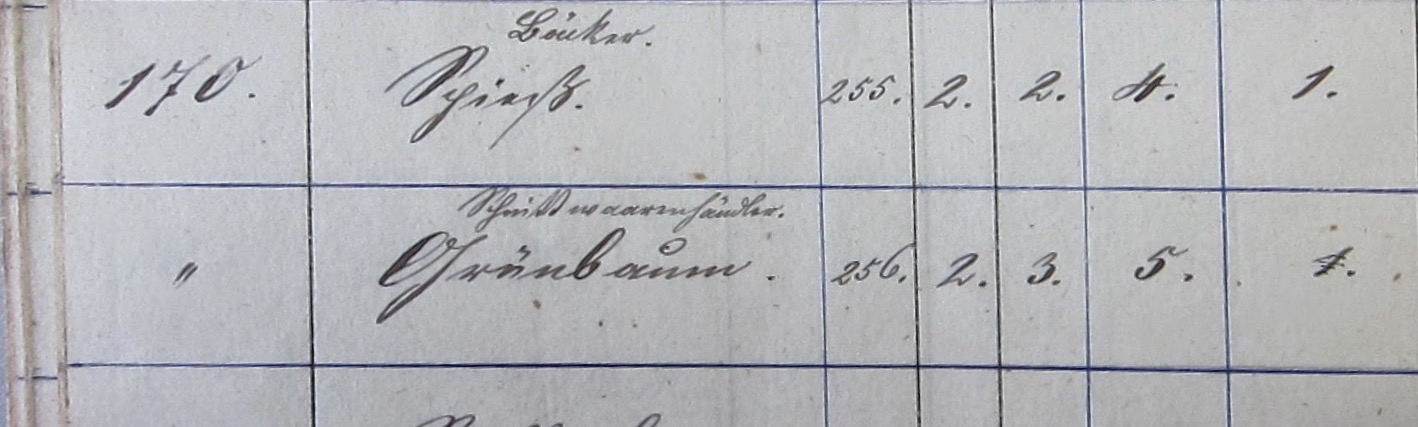 Bäcker.
170. Spieß. 255. 2. 2. 4. 1.
Schnittwaarenhändler.
" Grünbaum. 256. 2. 3. 5. 1.